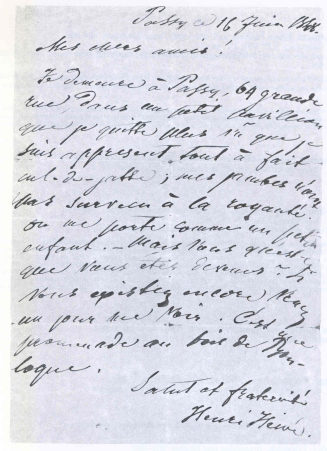 Passy ce 16 Juin 1848.
Mes chers amis!
Je demeure à Passy, 64 grande
rue, dans un petit pavillon
que je quitte plus vu que je
suis appresent tout à fait
cul-de-jatte; mes jambes n'ont
pas survécu à la royauté.
on me porte comme un petit
enfant. – Mais vous
que vous etes devenus
Vous existez encore Venez
un jour me voir. C'est une
promenade au bois de Bou-
logne.
Salut et fraternité
Henri Heine.